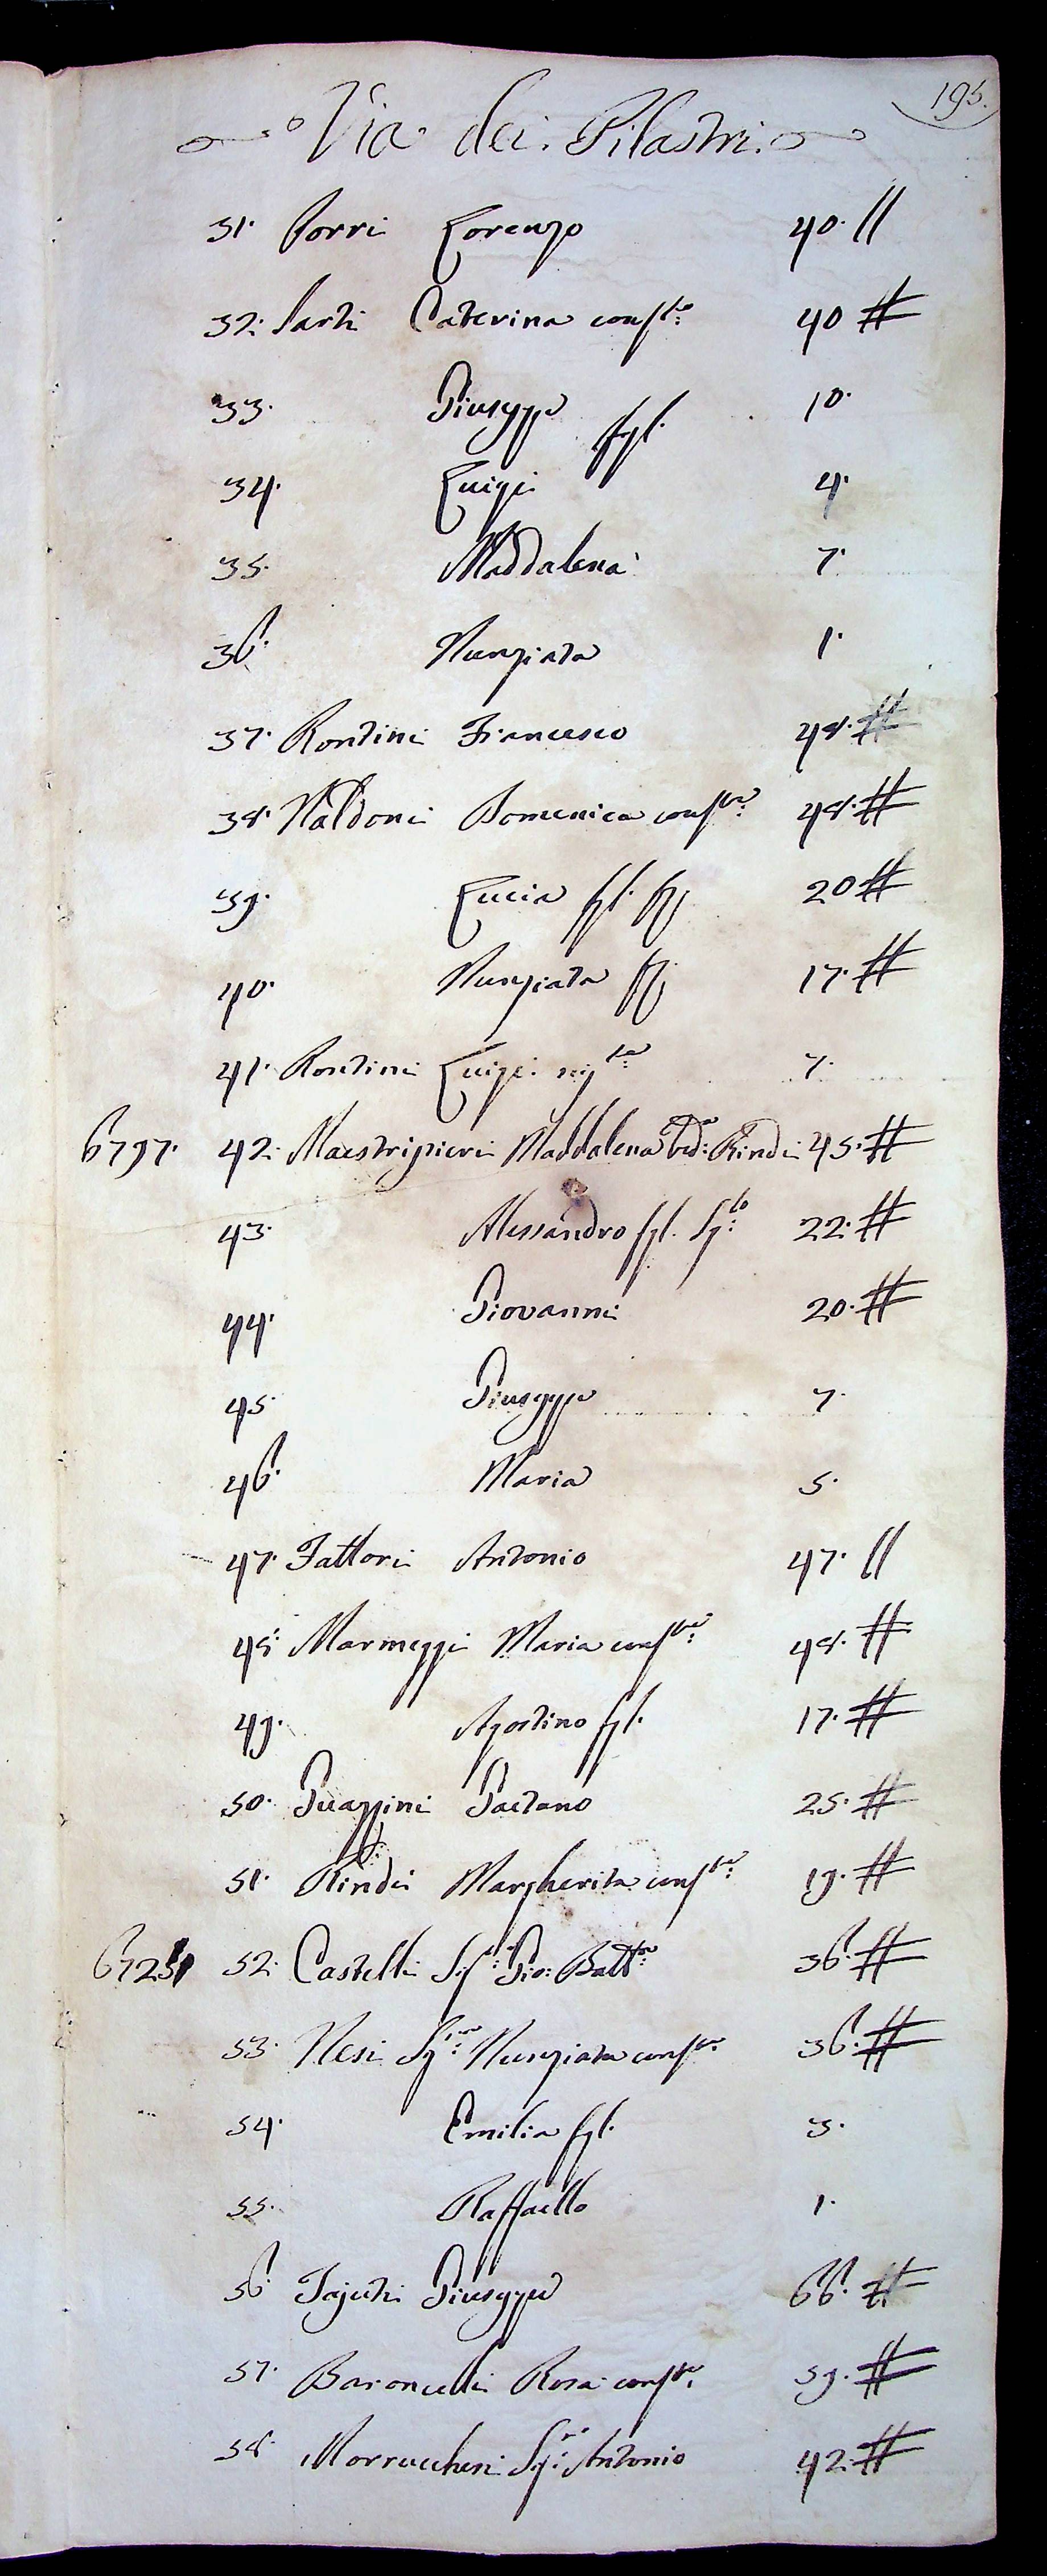 195.
Via dei Pilastri.
31. Porri Lorenzo 40. //
32. Sarti Caterina conste: 40 #
33. Giuseppe 10.
figl.
34. Luigi 4.
35. Maddalena 7.
36. Nunziata 1.
37. Rontini Francesco 48. #
38. Naldoni Domenica conste: 48. #
39. Lucia figl. 20 #
40. Nunziata 17. #
41. Rontini Luigi nipte: 7.
6797. 42. Maestripieri Maddalena ved: Rindi 45. #
43. Alessandro figl. 22. #
44. Giovanni 20. #
45. Giuseppe 7.
46. Maria 5.
47. Fattori Antonio 47. //
48. Marmeggi Maria conste: 48. #
49. Agostino figl. 17. #
50. Guazzini Gaetano 25. #
51. Rindi Margherita conste: 19. #
52. Castelli Sigr: Gio: Battta: 36. #
53. Nesi Sigra: Nunziata conste: 36. #
54. Emilia figl. 3.
55. Raffaello 1.
56. Giuseppe 66. #
57. Baroncelli Rosa conste: 59. #
58. Morrocchesi Sigr: Antonio 42. #